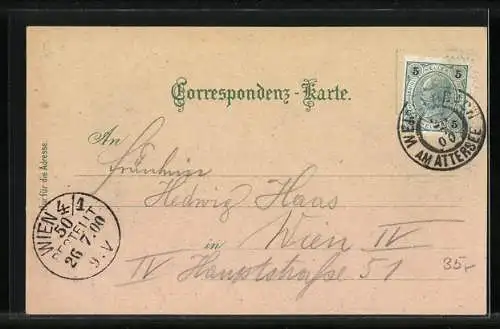 Correspondenz-Karte.
5 5
5
WEYREGG
AM ATTERSEE
00
An
Fräulein
Hedwig Haas
in Wien IV
IV Hauptstraße 51
nur für die Adresse.
WIEN 4/1
50
BESTELLT
26.7.00
9.V
35,-